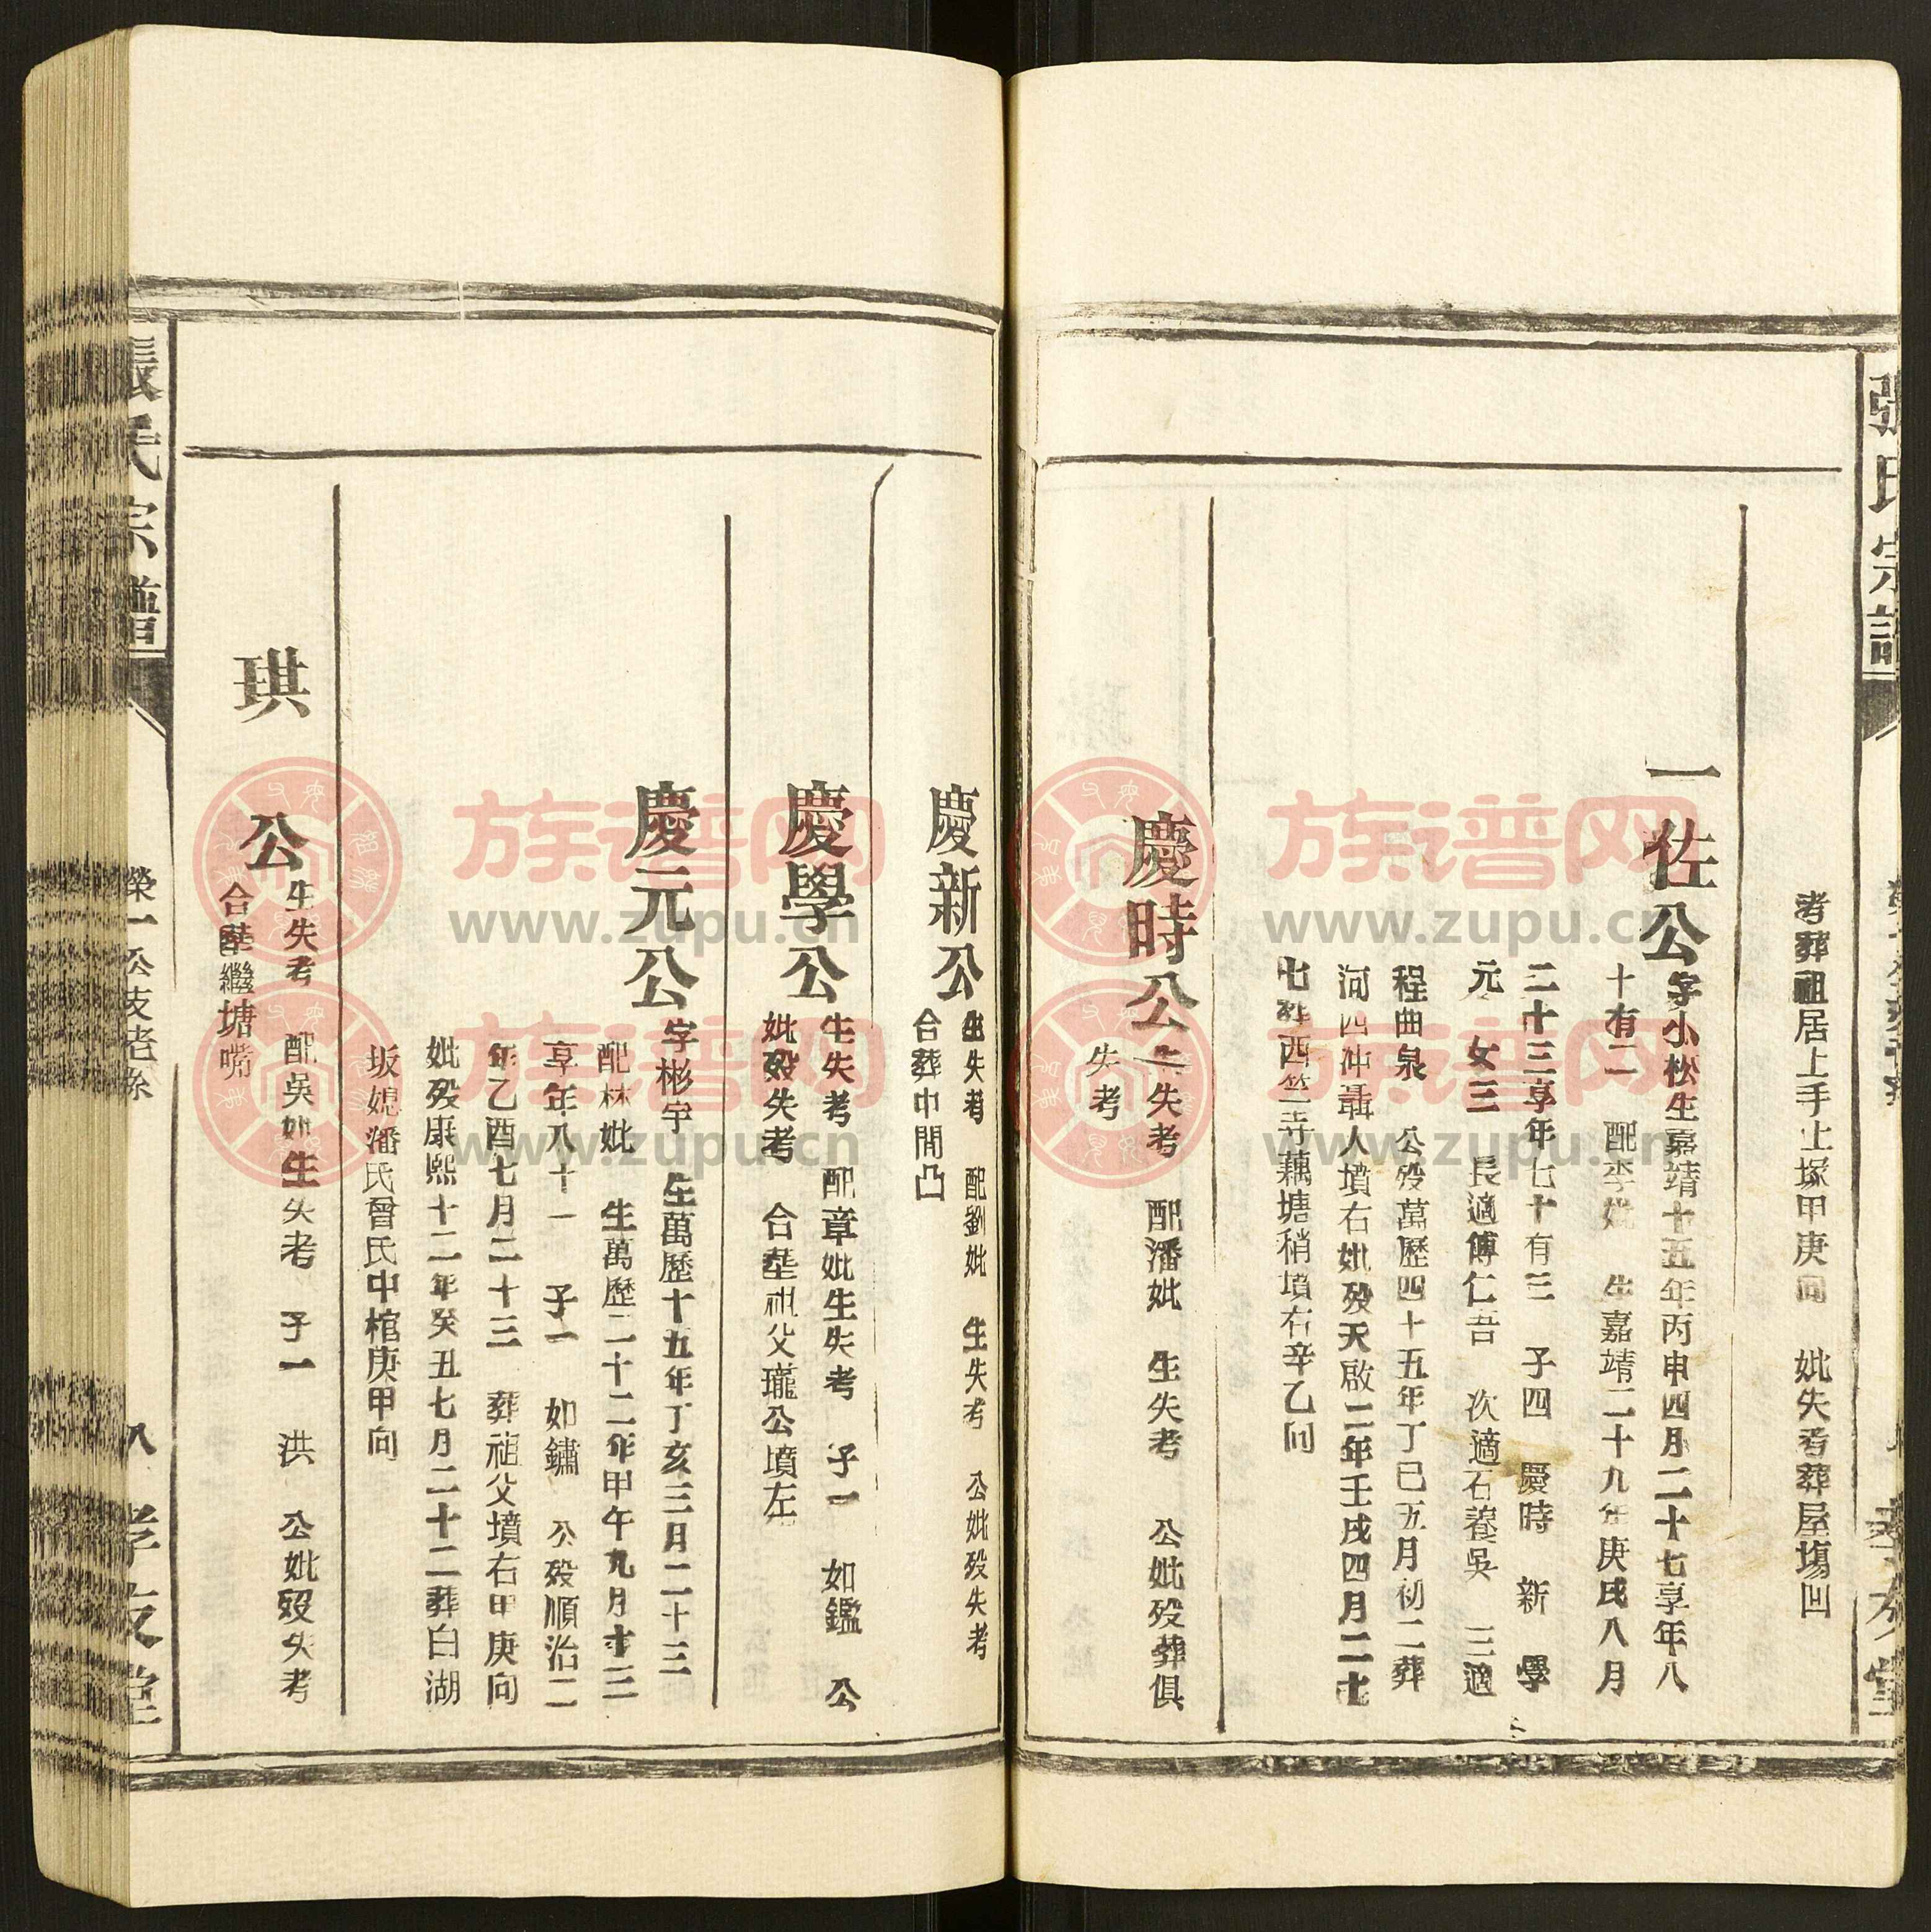 張氏宗譜
考葬祖居上手上塚甲庚向 妣失考葬屋塲凹
一佐公
字小松生嘉靖十五年丙申四月二十七享年八
十有二 配李妣 生嘉靖二十九年庚戌八月
二十三享年七十有三 子四 慶時 新 學
元 女三 長適傅仁吾 次適石養吳 三適
程曲泉 公殁萬歷四十五年丁巳五月初二葬
河四冲聶人墳右妣殁天啟二年壬戌四月二十
七葬西竺寺藕塘稍墳右辛乙向
慶時公
生失考 配潘妣 生失考 公妣殁葬俱
失考
慶新公
生失考 配劉妣 生失考 公妣殁失考
合葬中間凸
慶學公
生失考 配章妣生失考 子一 如鑑 公
妣殁失考 合塟祖父瓏公墳左
慶元公
字彬宇 生萬歷十五年丁亥三月二十三
配林妣 生萬歷二十二年甲午九月十三
享年八十一 子一 如鏽 公殁順治二
年乙酉七月二十三 葬祖父墳右甲庚向
妣殁康熙十二年癸丑七月二十二葬白湖
坂媳潘氏曾氏中棺庚甲向
珙公
生失考 配吳妣生失考 子一 洪 公妣殁失考
合塟繼塘嘴
張氏宗譜
榮一公支老系
八
孝友堂
族谱网
www.zupu.cn
族谱网
www.zupu.cn
族谱网
www.zupu.cn
族谱网
www.zupu.cn